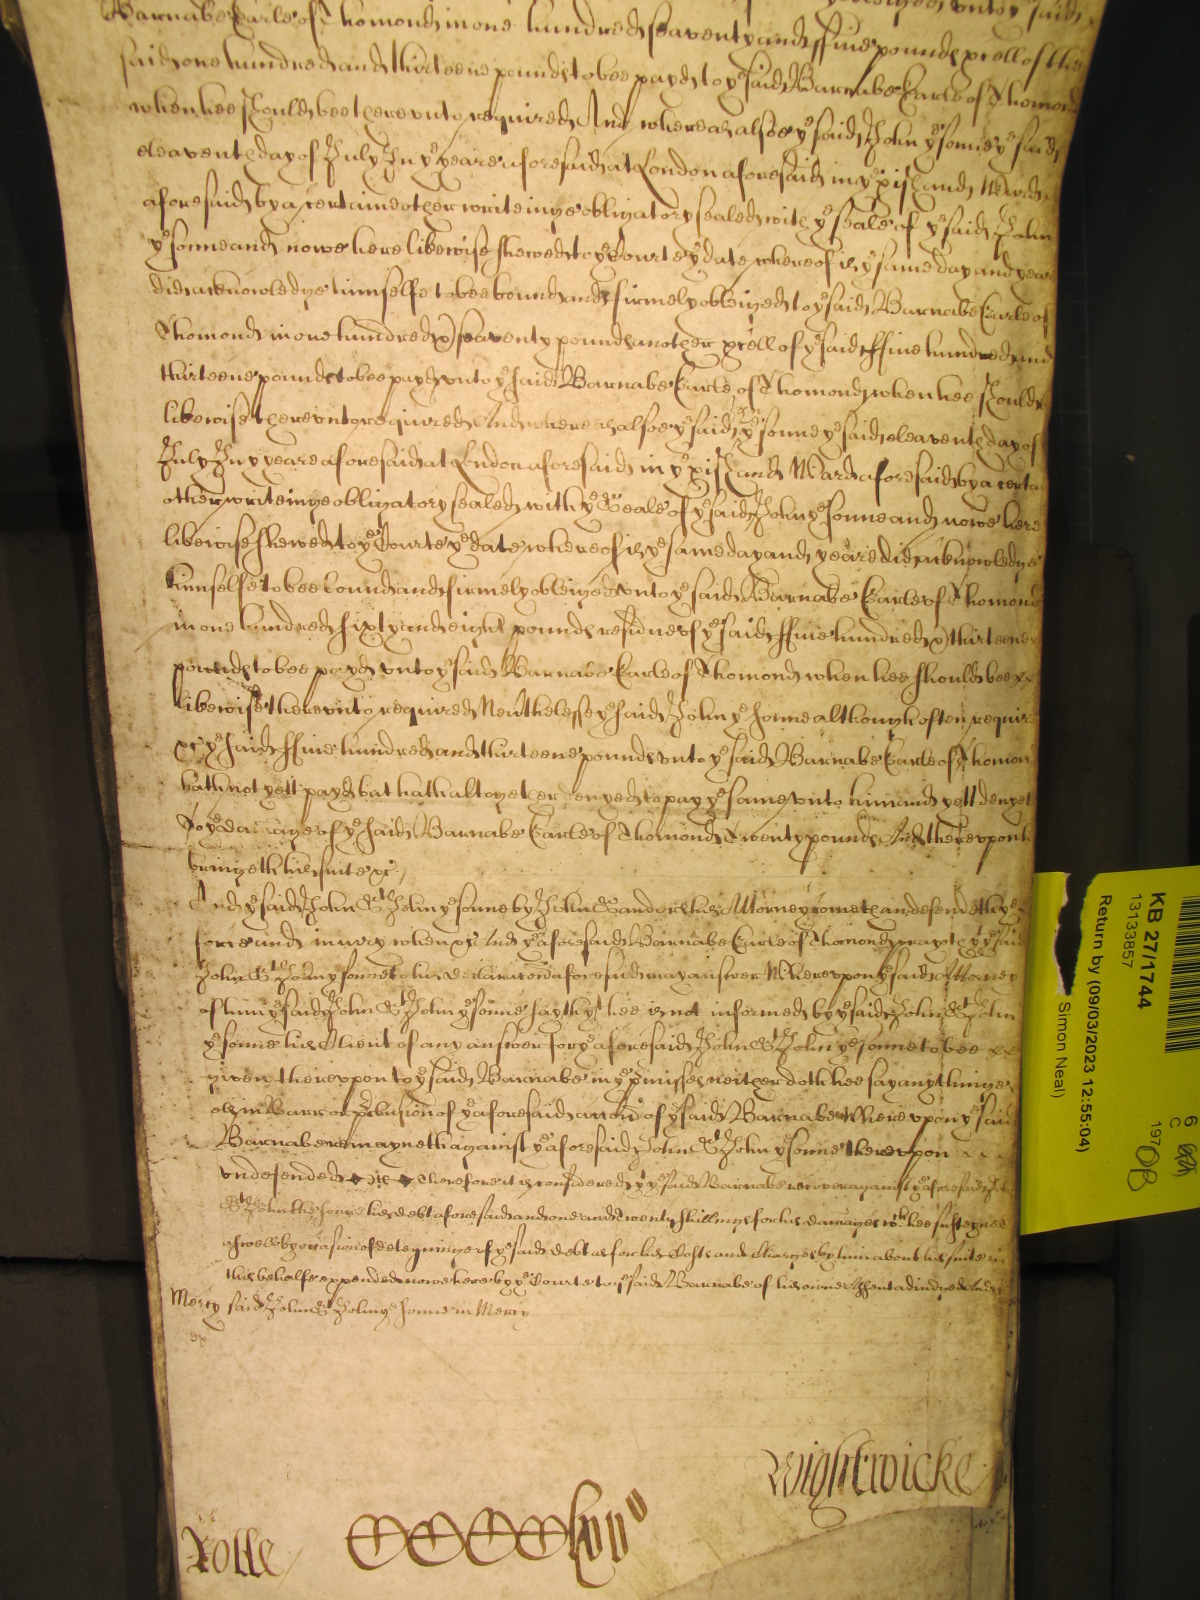 vnto ye said
Barnabe Earle of Thomond in one hundred seaventy and ffiue pounds p'cell of the
said one hundred and thirteene pounds to bee payd to ye said Barnabe Earle of Thomond
when hee should bee therevnto required And whereas alsoe ye said John ye sonne ye said
eleaventh day of July In ye yeare aforesaid at London aforesaid in ye p'ish and Ward
aforesaid by a certaine other writeinge obligatory sealed with ye seale of ye said John
ye sonne and nowe here likewise shewed to ye Courte ye date whereof is ye same day and yeare
did acknowledge himselfe to bee bound and firmely obleiged to ye said Barnabe Earle of
Thomond in one hundred & seaventy pounds another p'cell of ye said ffiue hundred and
thirteene pounds to bee payd vnto ye said Barnabe Earle of Thomond when hee should
likewise therevnto required And whereas alsoe ye said Jn ye sonne ye said eleaventh day of
July In ye yeare aforesaid at London aforesaid in ye p'ish and Ward aforesaid by a certa
other writeinge obligatory sealed with ye Seale of ye said John ye sonne and nowe here
likewise shewed to ye Courte ye date whereof is ye same day and yeare did acknowledge
himselfe to bee bound and firmely obleiged vnto ye said Barnabe Earle of Thomond
in one hundred sixty and eight pounds residue of ye said ffiue hundred & thirteene
pounds to bee payd vnto ye said Barnabe Earle of Thomond when hee should bee
likewise therevnto required Neu'thelesse ye said John ye sonne although often requir
&c ye said ffiue hundred and thirteene pounds vnto ye said Barnabe Earle of Thomon
hath not yett payd but hath altogether denyed to pay ye same vnto him and yett denyeth
To ye damage of ye said Barnabe Earle of Thomond Twenty pounds And therevpon h
bringeth his suite &c
And ye said John St John ye sonne by John Sandors his Attorney cometh and defendeth ye
force and iniury when &c And ye aforesaid Barnabe Earle of Thomond prayeth yt ye said
John St John ye sonne to his declaracon aforesaid may answer Wherevpon ye said Attorney
of him ye said John St John ye sonne sayth yt hee is not informed by ye said John St John
ye sonne his Client of any answer for ye aforesaid John St John ye sonne to bee
given therevpon to ye said Barnabe in ye p'misses neither doth hee say any thinge
els in Barr or p'clusion of ye aforesaid accon of ye said Barnabe Wherevpon ye said
Barnabe remayneth against ye aforesaid John St John ye sonne therevpon
vndefended &c Therefore it is considered yt ye said Barnabe recover against ye aforesaid Jn
St John the sonne his debt aforesaid and one and Twenty shillings for his damages wch hee susteyned
aswell by occasion of deteyninge of ye said debt as for his Costs and Charges by him about his suite in
this behalfe expended nowe here by ye Courte to ye said Barnabe of his owne Assent adiudged And ye
Mercy said John St John ye sonne in Mercy
Wightwicke
Rolle
KB 27/1744
13133857
Return by (09/03/2023 12:55:04)
Simon Neal)
6
C
197